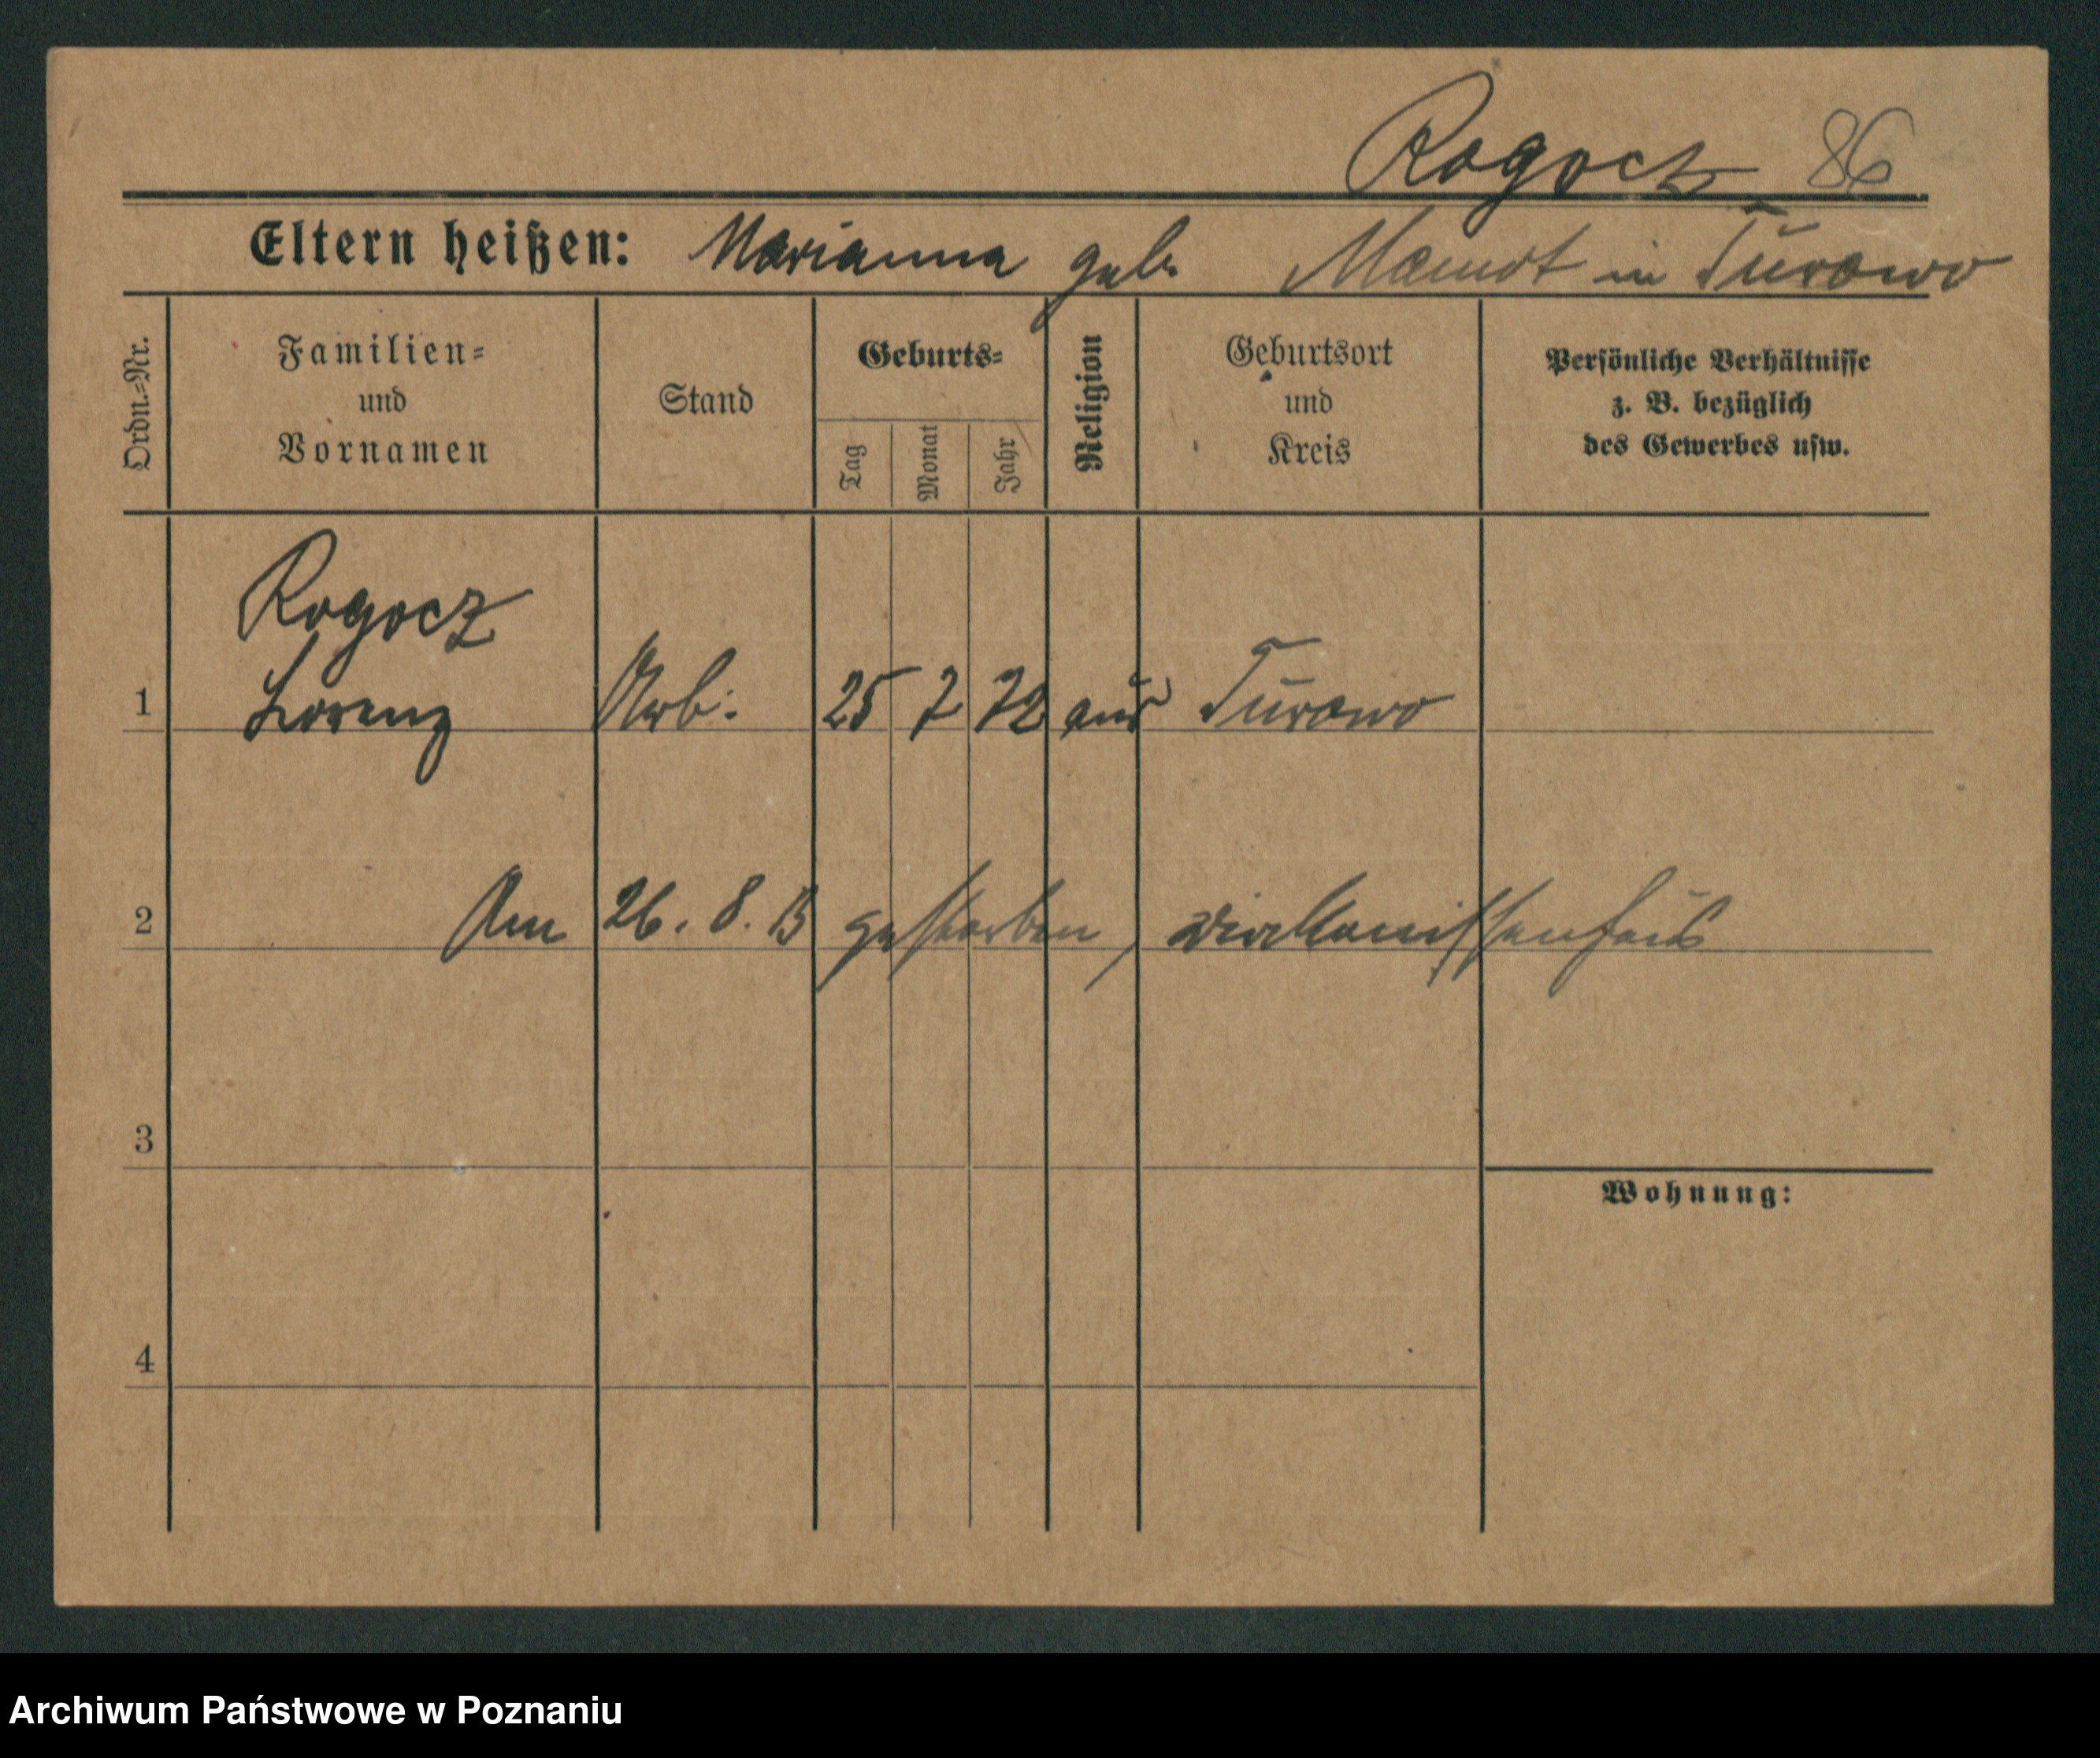 Rogocz 86
Eltern heißen: Marianna geb. in Turowo
Ordn.-Nr.
Familien- und Vornamen
Stand
Geburts-
Tag
Monat
Jahr
Religion
Geburtsort und Kreis
Persönliche Verhältnisse
z. B. bezüglich
des Gewerbes usw.
Rogocz
1 Lorenz Arb. 25 7 72 aus Turowo
2 Am 26. 8. 13 gestorben, Diakonissenhaus
3
Wohnung:
4
Archiwum Państwowe w Poznaniu